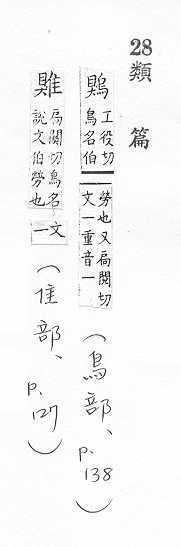 28
類篇
鶪
工役切
鳥名伯
勞也又扃闃切
文一重音一
(鳥部、p.138)
扃闃切鳥名
說文伯勞也
文
一
(隹部、p.127)